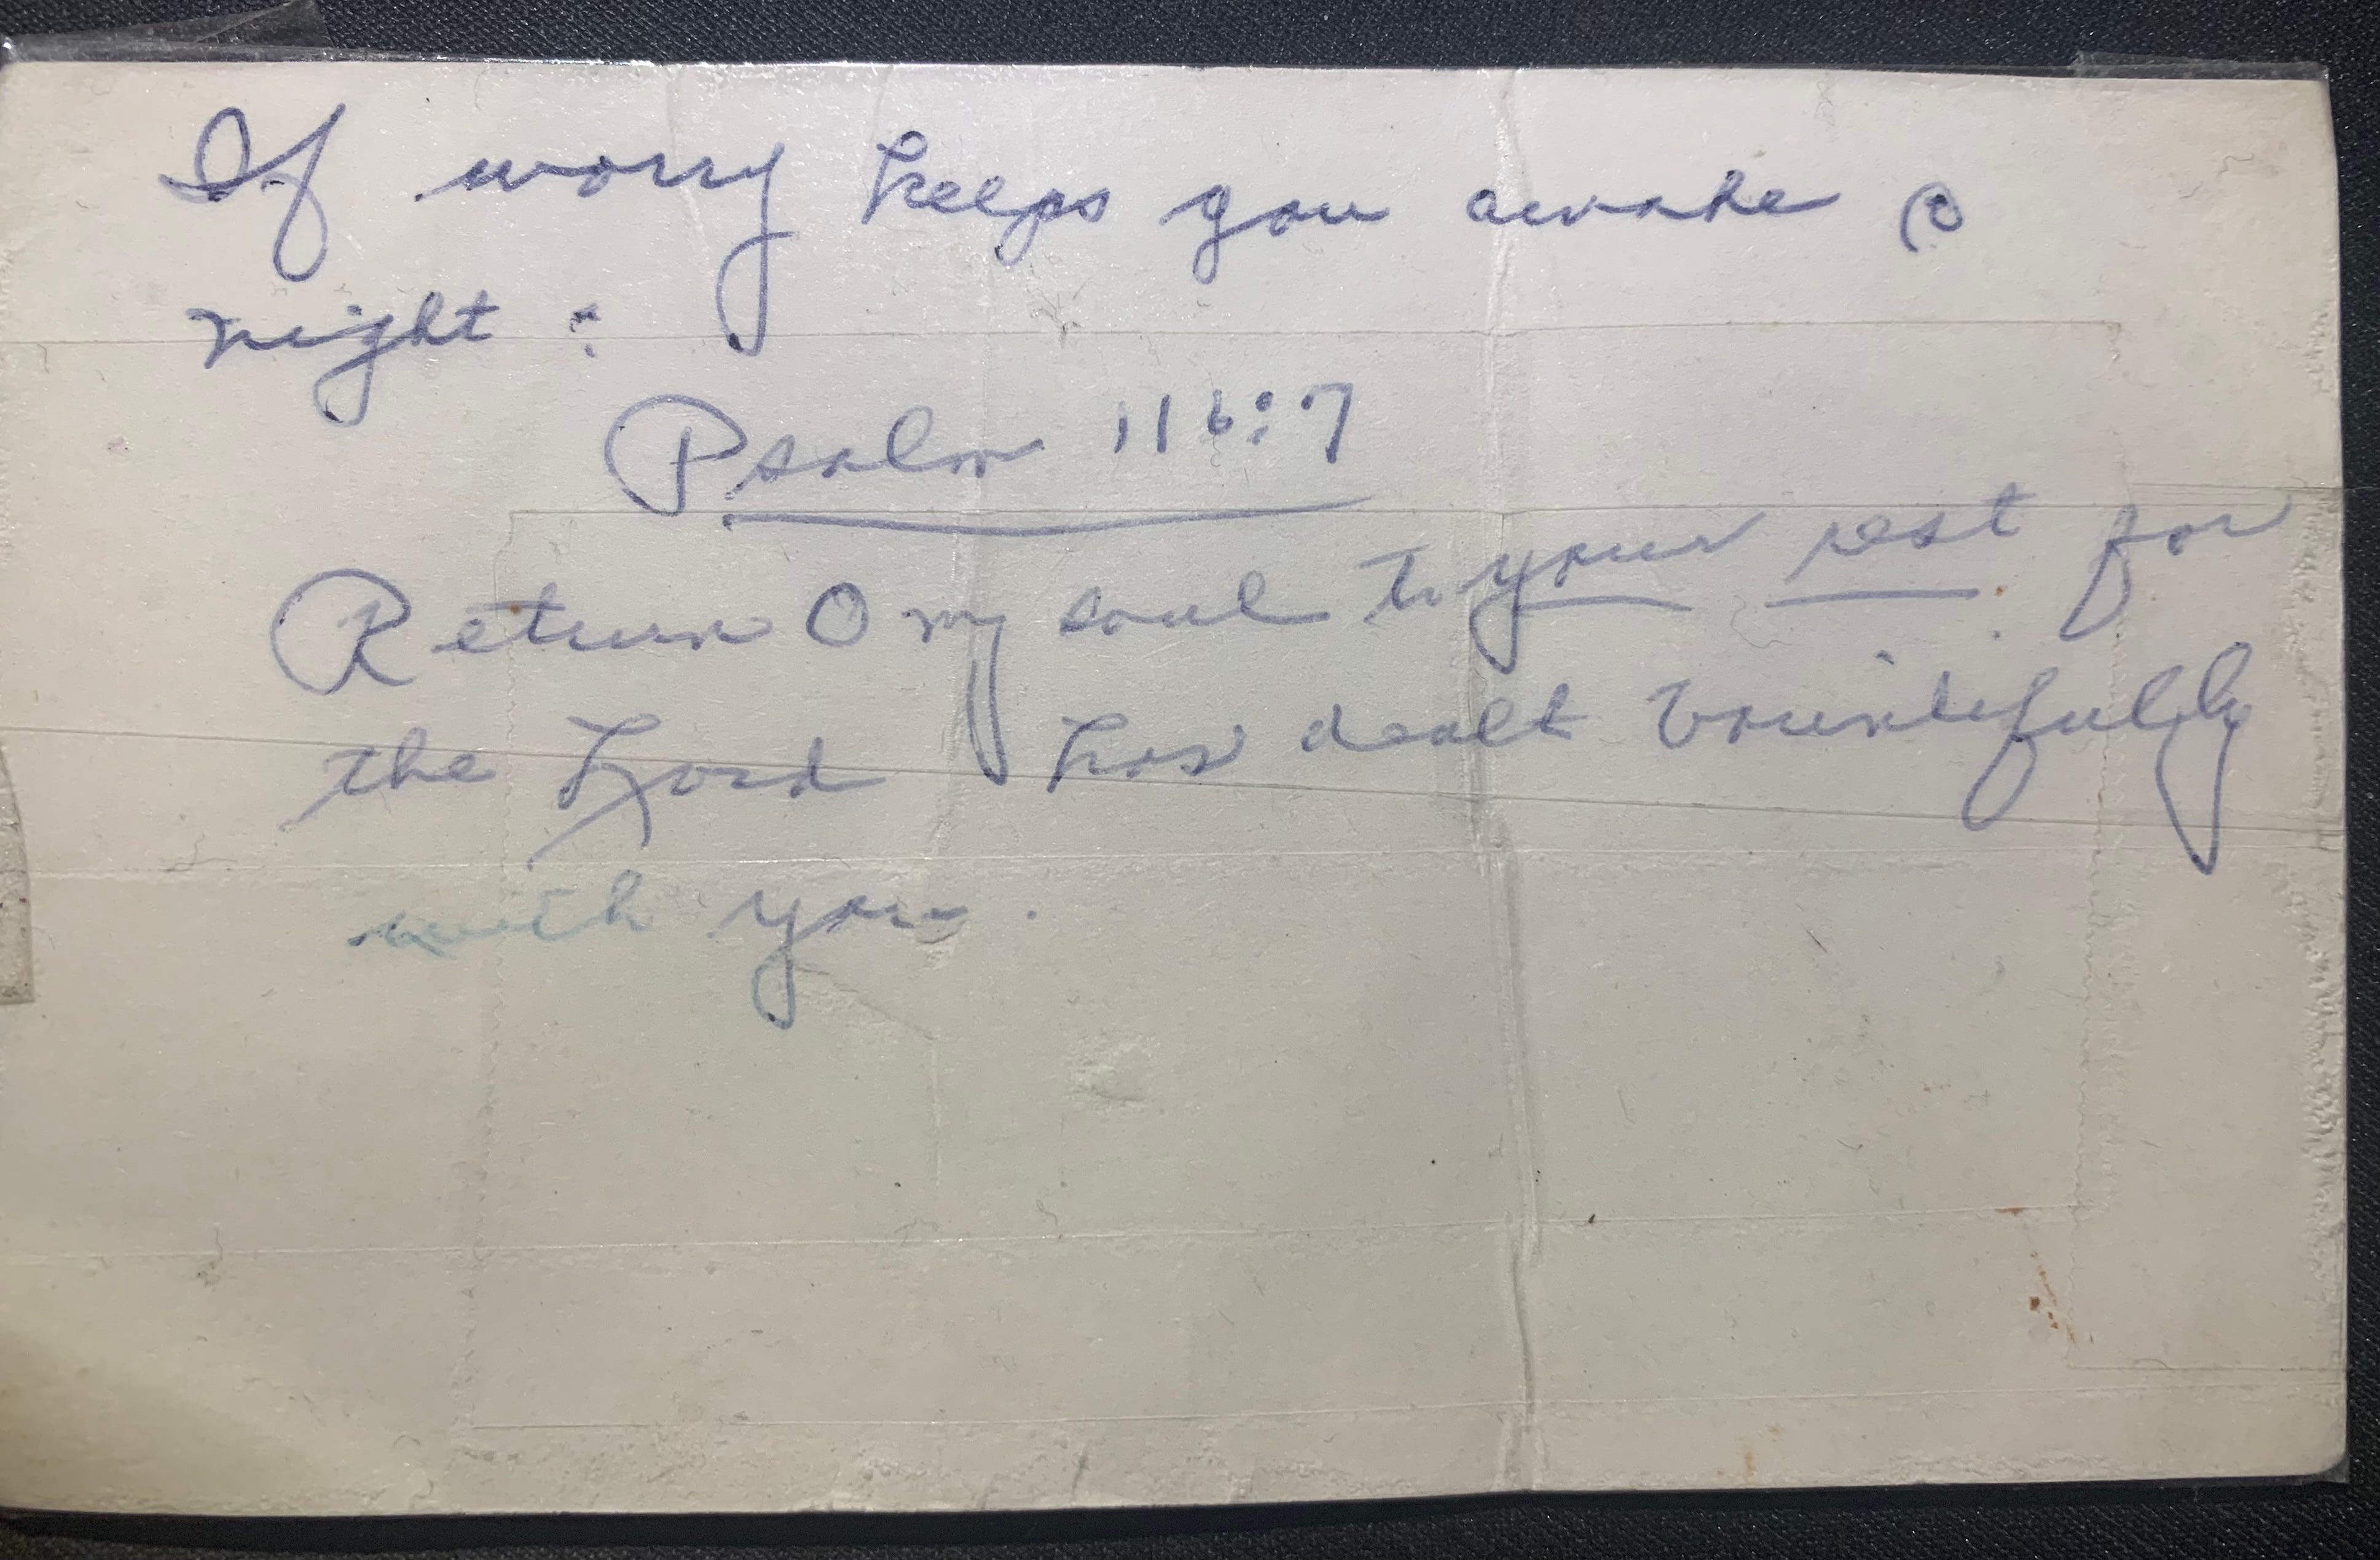 If worry keeps you awake @
night :
Psalm 116:7
Return O my soul to your rest for
the Lord has dealt bountifully
with you.